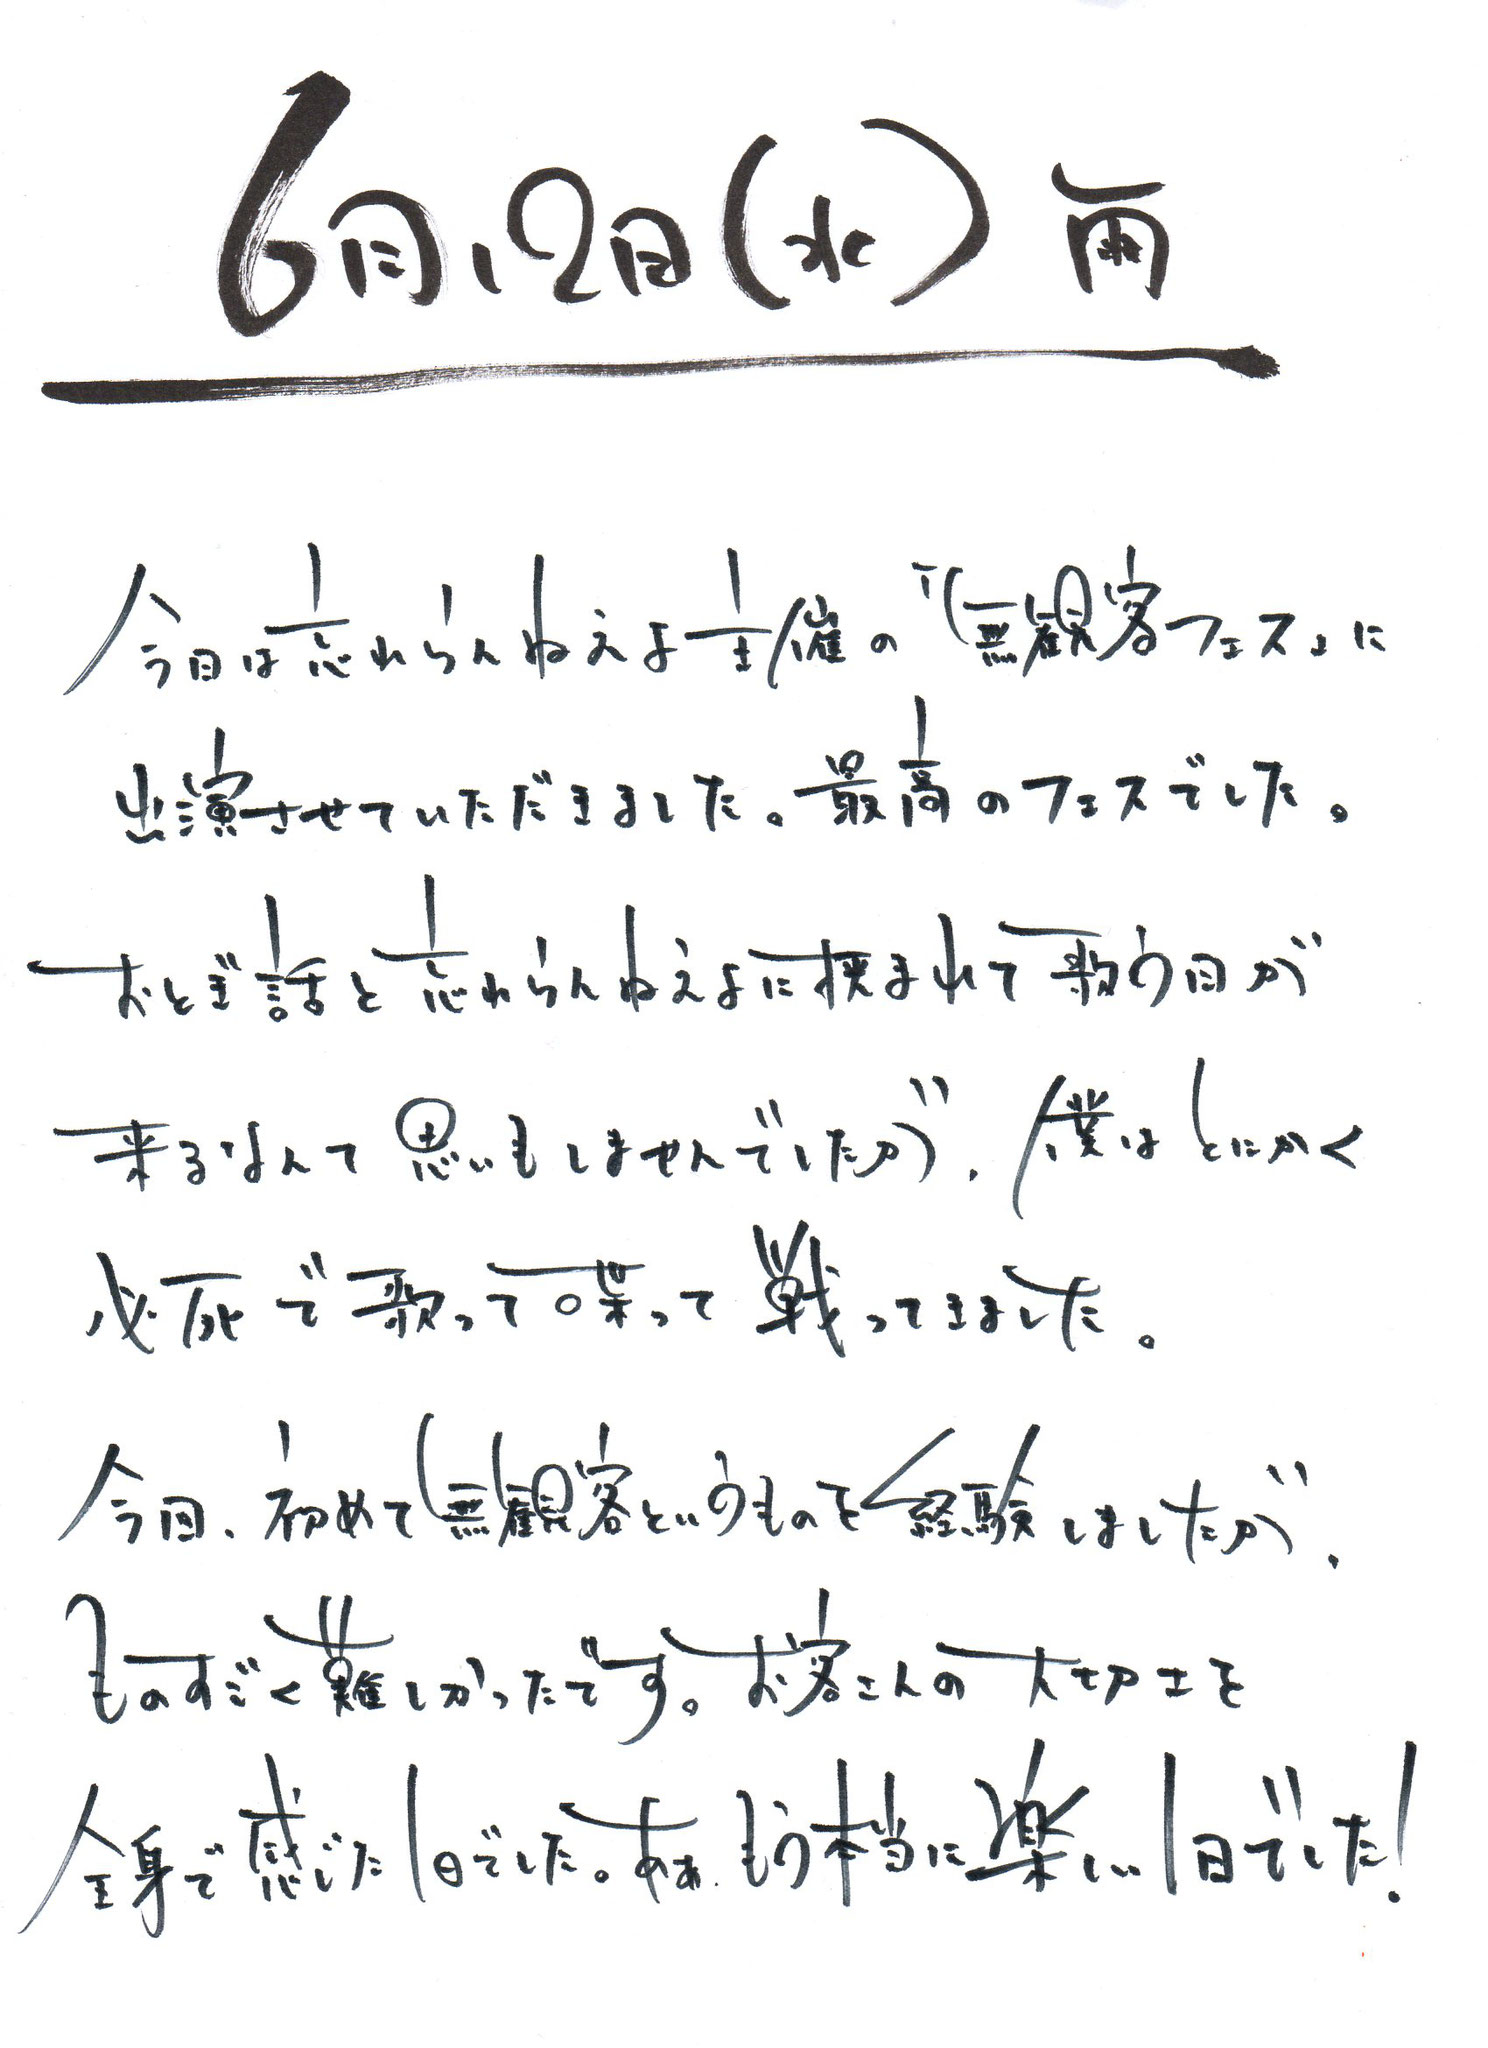 6月12日(水) 雨
今日は忘れらんねえよ主催の『無観客フェス』に
出演させていただきました。最高のフェスでした。
おとぎ話と忘れらんねえよに挟まれて歌う日が
来るなんて思いもしませんでしたが、僕はとにかく
必死で歌って喋って戦ってきました。
今回、初めて無観客というものを経験しましたが、
ものすごく難しかったです。お客さんの大切さを
全身で感じた1日でした。あぁ、もう本当に楽しい1日でした!